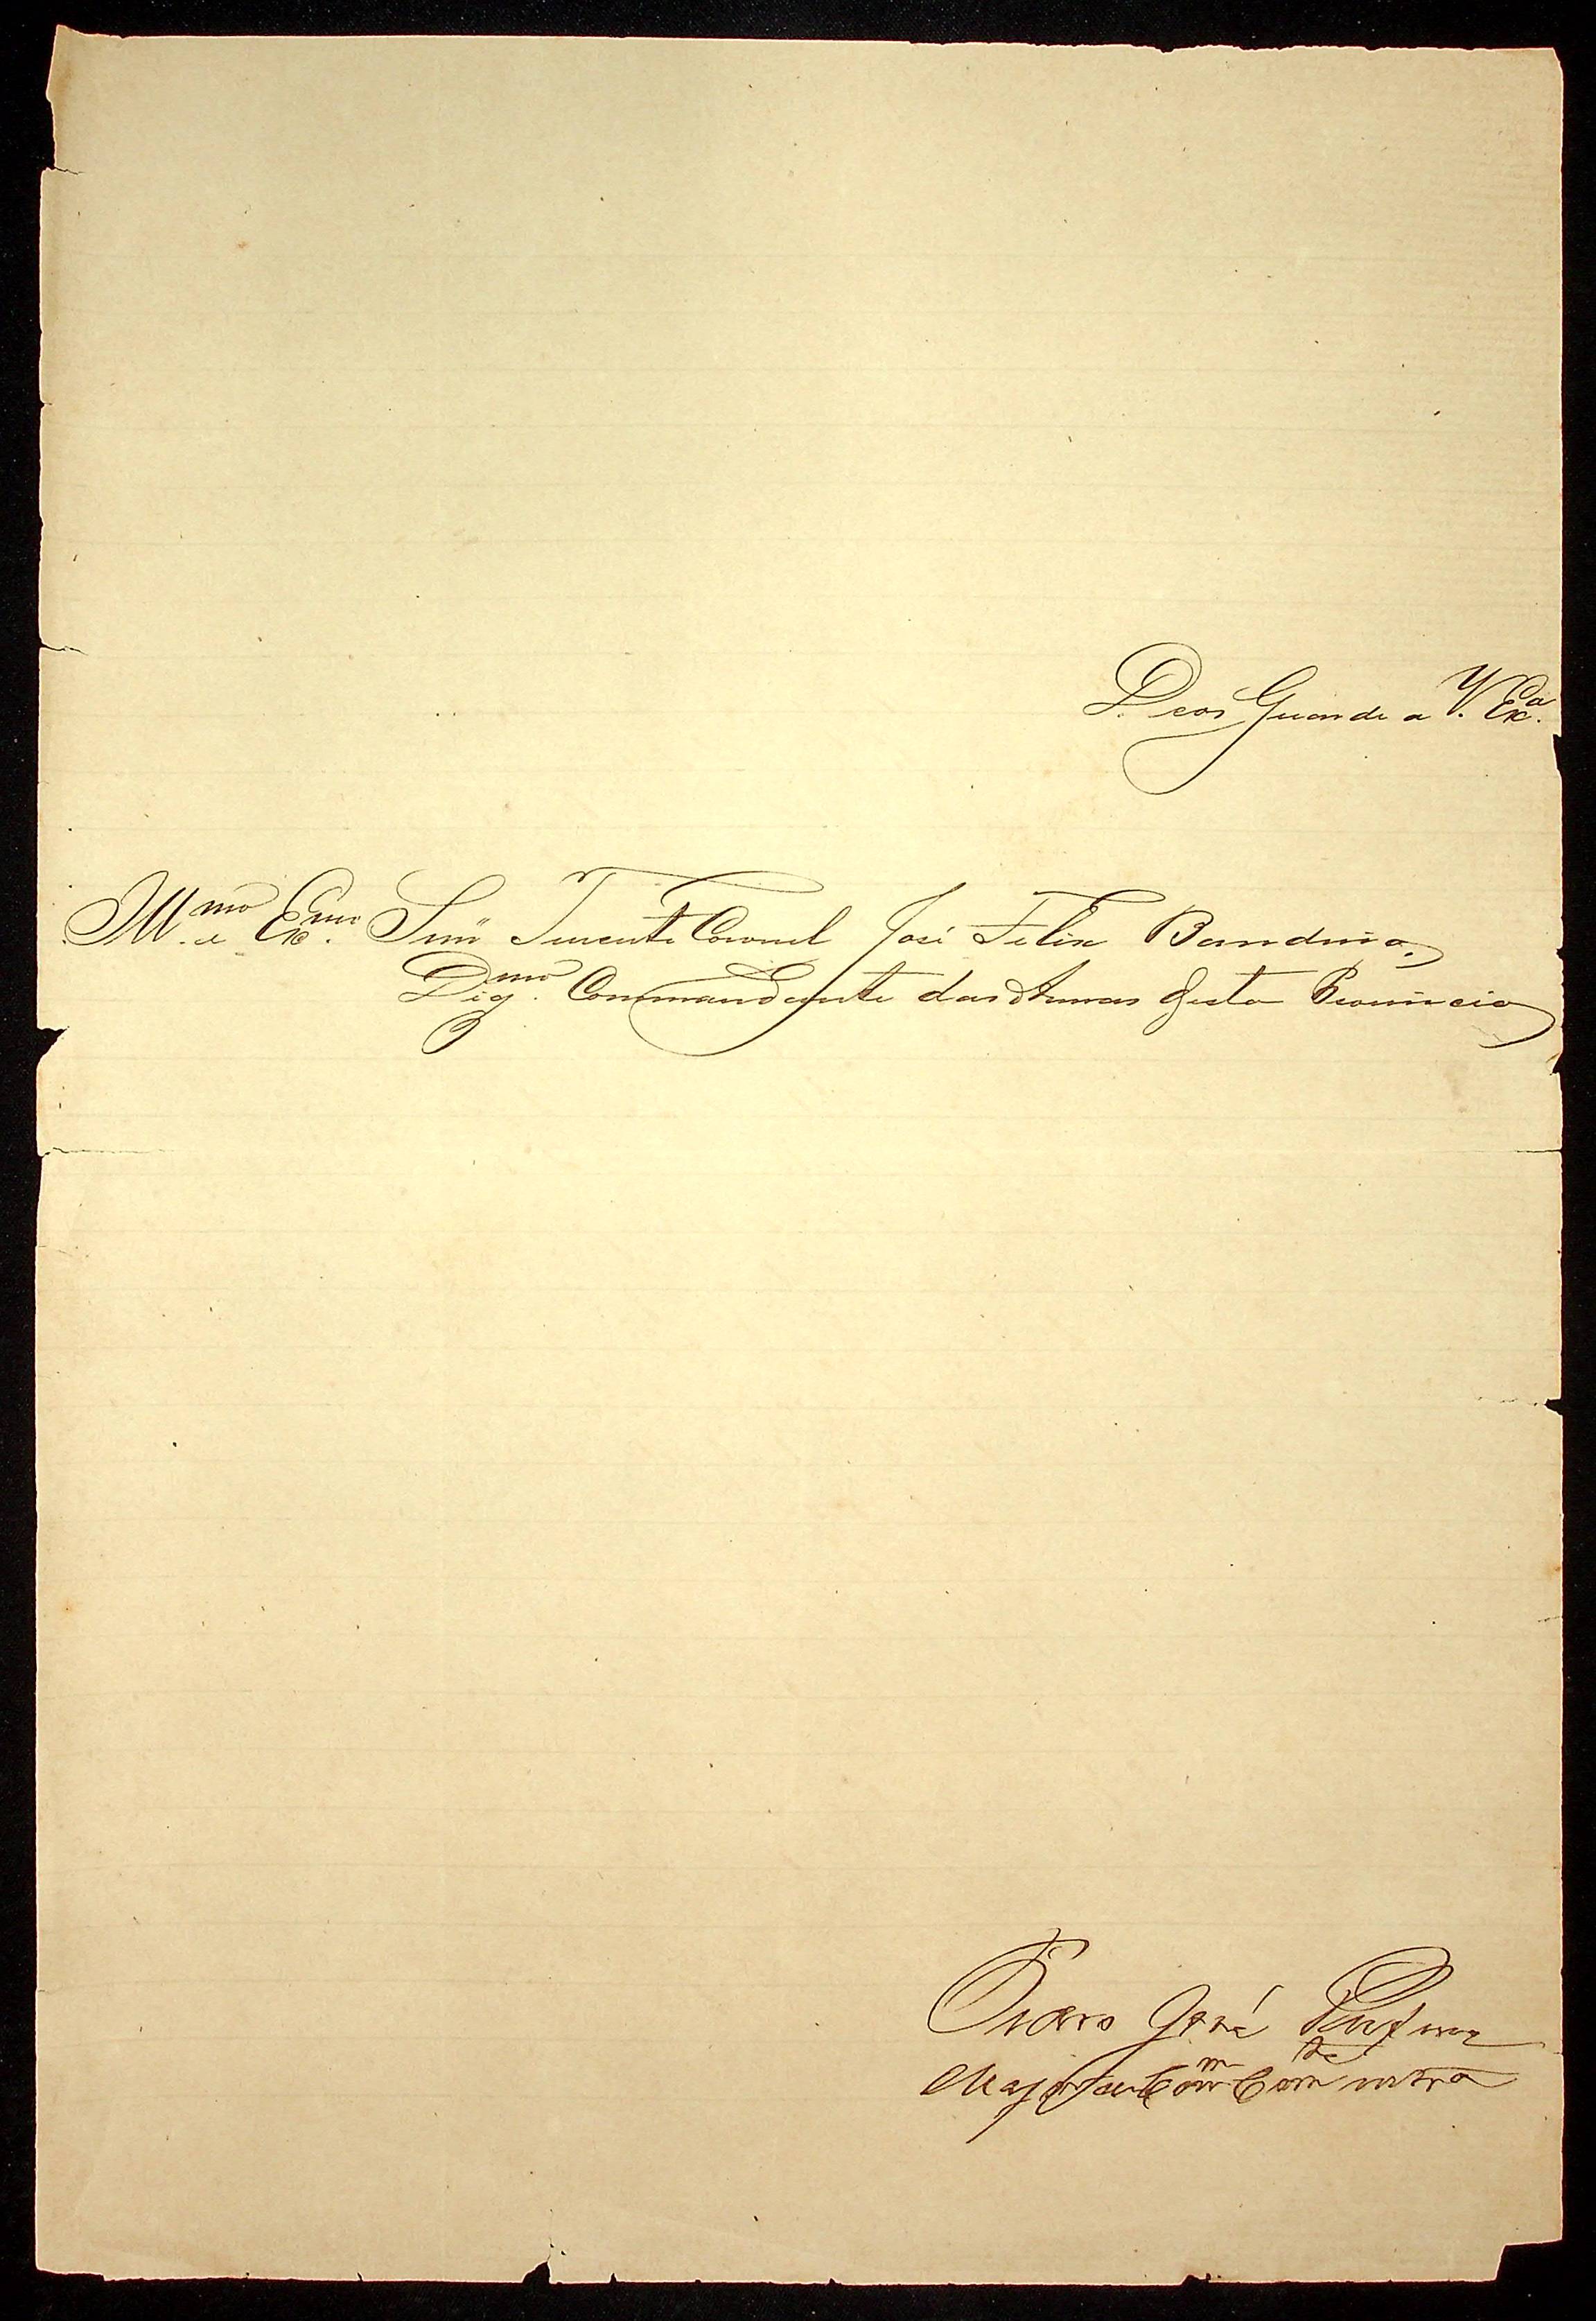 Deos Guarde a V. Exª.
Illmo. e Exmo. Snr̃ Tenente Coronel José Felix Bandeira,
Digmo. Commandante das Armas desta Provincia
José
Major